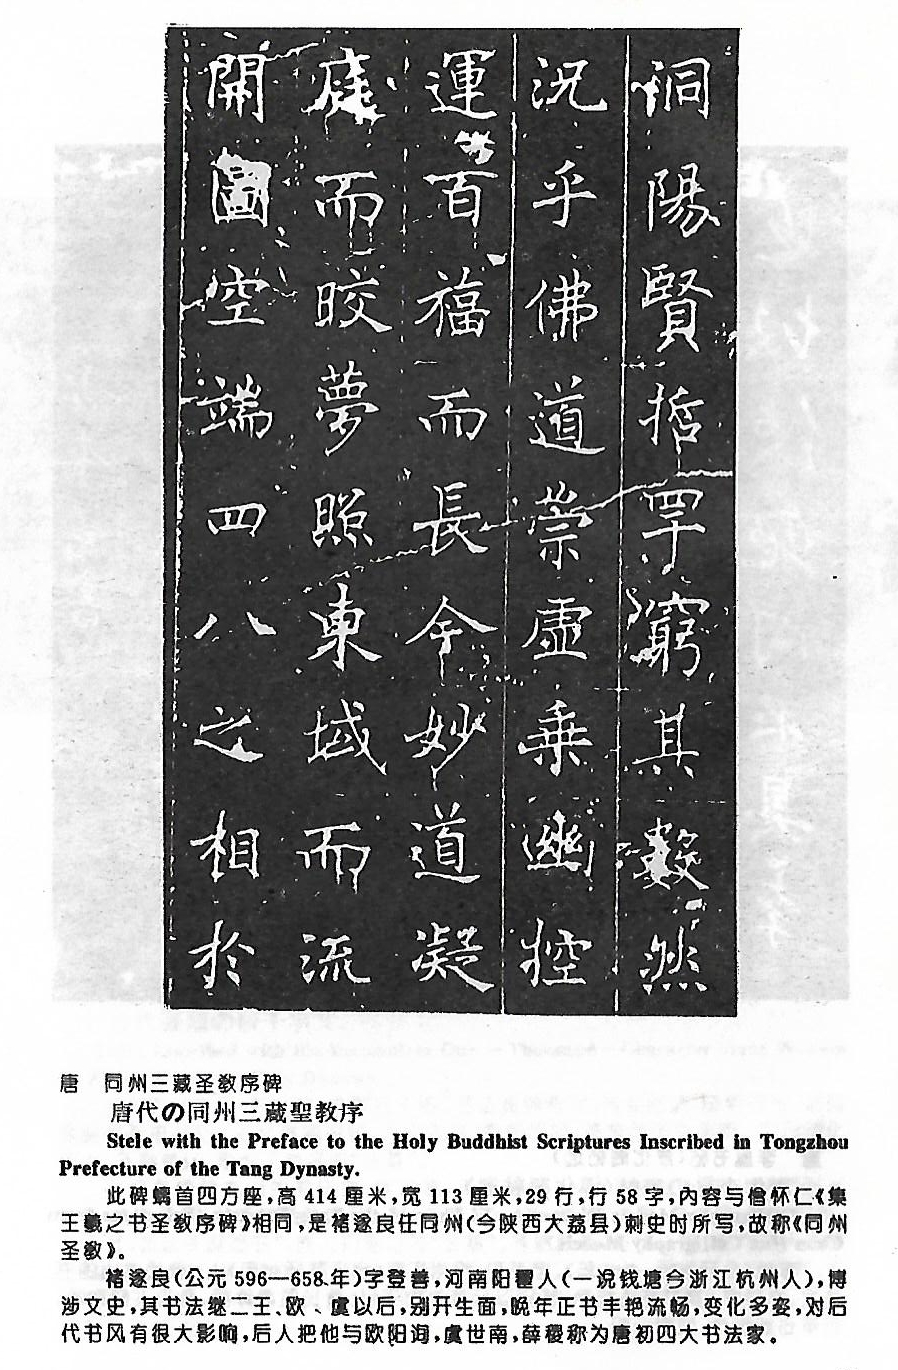 洞陽賢哲罕窮其數然
況乎佛道崇虛乘幽控
運百福而長今妙道凝
庭而皎夢照東域而流
開圖空端四八之相於
唐　同州三藏圣教序碑
唐代の同州三蔵聖教序
Stele with the Preface to the Holy Buddhist Scriptures Inscribed in Tongzhou
Prefecture of the Tang Dynasty.
此碑螭首四方座，高 414 厘米，宽 113 厘米，29 行，行 58 字，内容与僧怀仁《集
王羲之书圣教序碑》相同，是褚遂良任同州（今陕西大荔县）刺史时所写，故称《同州
圣教》。
褚遂良（公元 596—658、年）字登善，河南阳翟人（一说钱塘今浙江杭州人），博
涉文史，其书法继二王、欧、虞以后，别开生面，晚年正书丰艳流畅，变化多姿，对后
代书风有很大影响，后人把他与欧阳询，虞世南，薛稷称为唐初四大书法家。